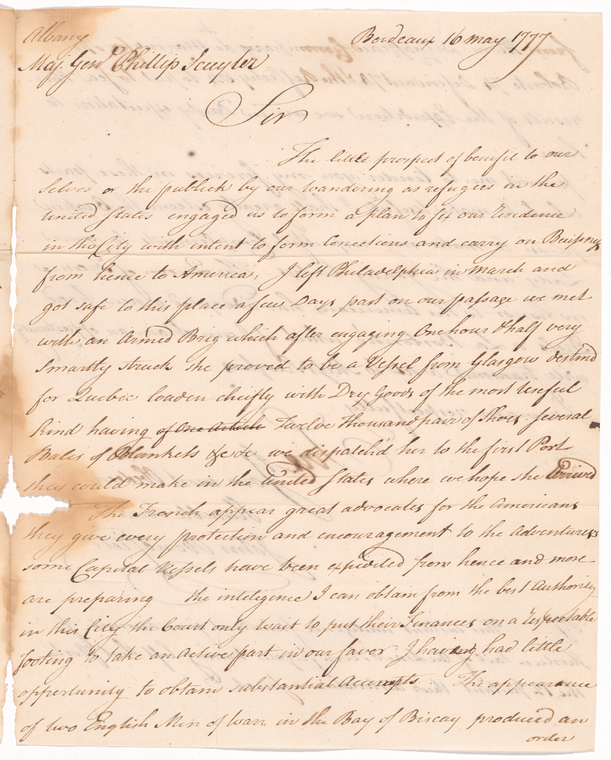 Albany
Bordeaux 16 may 1777
Maj. Genl Phillip Scuyler
Sir
The little prospect of benefit to our
selves or the publick by our wandering as refugees in the
united States engaged us to form a plan to fix our Residence
in this City with intent to form Conections and carry on Buisiness
from hence to America, I left Philadelphia in March and
got safe to this place a few Days past on our passage we met
with an Armed Brig which after engaging One hour & half very
smartly struck she proved to be a Vessel from Glasgow destind
for Quebec loaden chiefly with Dry Goods of the most useful
kind having of One Article Twelve Thousand pair of Shoes Several
Bales of Blankets &c &c we dispatch'd her to the first Port
they could make in the united States where we hope she Arrived
The French appear great advocates for the Americans
they give every protection and encouragement to the Adventurers
some Capital Vessels have been expedited from hence and more
are preparing the inteligence I can obtain from the best Authority
in this City the Court only wait to put their Finances on a respectable
footing to take an Active part in our favor I having had little
opportunity to obtain substantial Accompts The appearance
of two English Men of War in the Bay of Biscay produced an
order